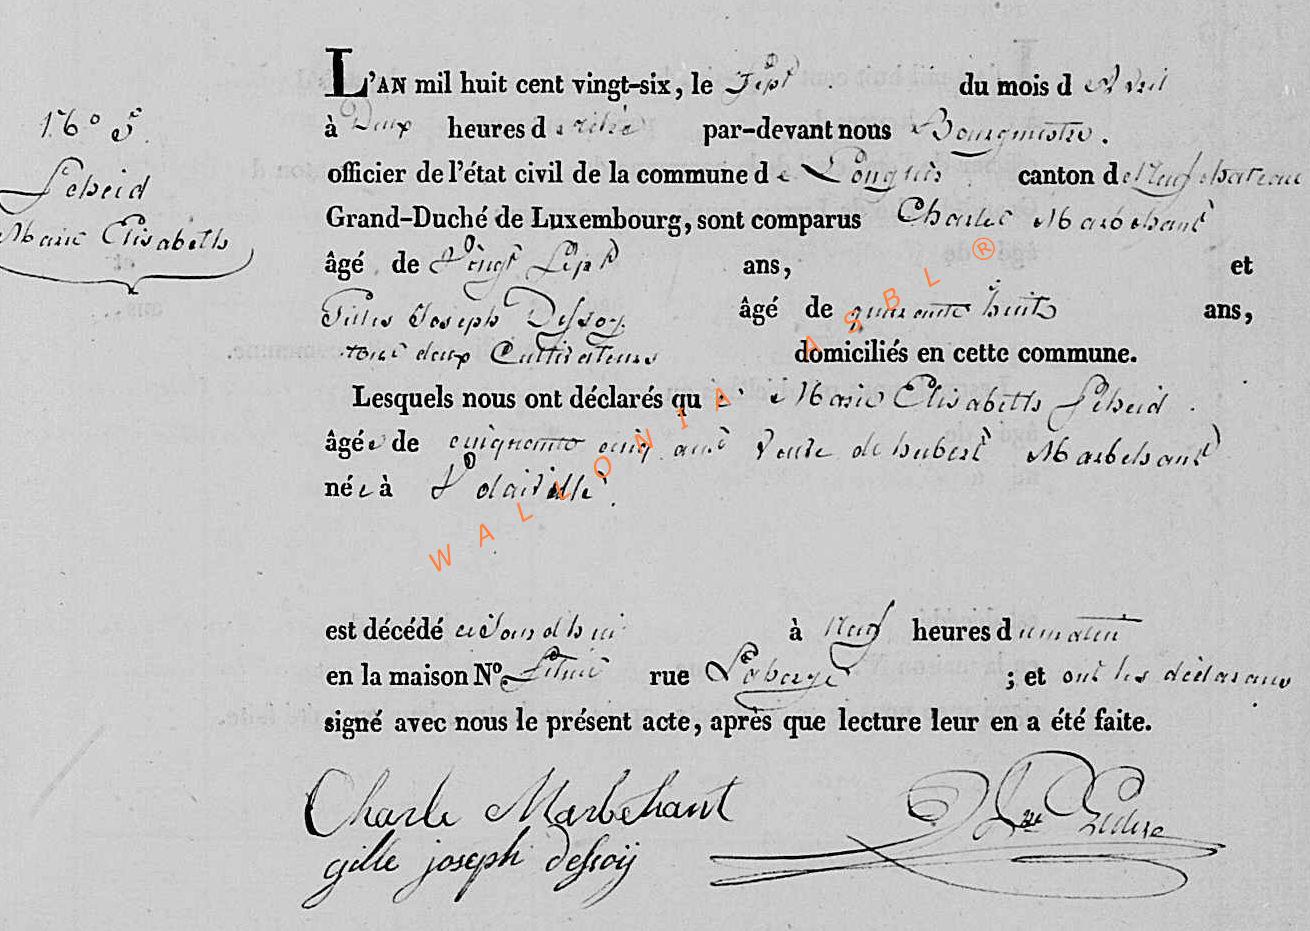 L'AN mil huit cent vingt-six, le Sept du mois d'Avril
16° S.
à Deux heures de rélevé par-devant nous Bourgmestre.
officier de l'état civil de la commune de Longlier canton de Neufchateau
Lcheid
Marie Elisabeth
Grand-Duché de Luxembourg, sont comparus Charles Marbehant
âgé de Vingt Sept ans, et
Gilles Joseph Dessoy âgé de quarante huit ans,
tous deux Cultivateurs domiciliés en cette commune.
Lesquels nous ont déclarés que Marie Elisabeth Lcheid
âgée de cinquante cinq ans Veuve de hubert Marbehant
née à
est décédé aujourdhui à Neuf heures du matin
en la maison No. Située rue ; et ont les déclarans
signé avec nous le présent acte, après que lecture leur en a été faite.
Charle Marbehant
gille joseph dessoÿ
WALLONIA ASBL ®